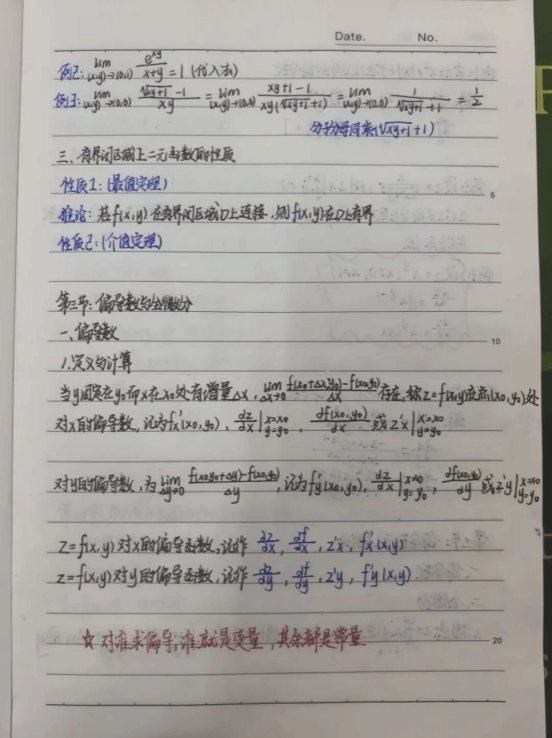 Date. No.
例2: lim (x,y)→(0,1) e^{xy}/(x+y) = 1 (代入法)
例3: lim (x,y)→(0,0) (√(xy+1) - 1)/(xy) = lim (x,y)→(0,0) (xy+1-1)/(xy(√(xy+1)+1)) = lim (x,y)→(0,0) 1/(√(xy+1)+1) = 1/2
分子分母同乘(√(xy+1)+1)
三、有界闭区域上二元函数的性质
性质1: (最值定理)
5
推论: 若f(x,y)在有界闭区域D上连接, 则f(x,y)在D上有界
性质2: (介值定理)
第三节: 偏导数与全微分
一、偏导数
10
1.定义与计算
当y固定在y₀而x在x₀处有增量△x, lim △x→0 (f(x₀+△x,y₀)-f(x₀,y₀))/△x 存在, 称z=f(x,y)在点(x₀,y₀)处
对x的偏导数, 记为f'x(x₀,y₀), ∂z/∂x|x=x₀ y=y₀, ∂f(x₀,y₀)/∂x 或 z'x|x=x₀ y=y₀
对y的偏导数, 为 lim △y→0 (f(x₀,y₀+△y)-f(x₀,y₀))/△y, 记为f'y(x₀,y₀), ∂z/∂x|x=x₀ y=y₀, ∂f(x₀,y₀)/∂y 或 z'y|x=x₀ y=y₀
z=f(x,y)对x的偏导函数, 记作 ∂z/∂x, ∂f/∂x, z'x, f'x(x,y)
z=f(x,y)对y的偏导函数, 记作 ∂z/∂y, ∂f/∂y, z'y, f'y(x,y)
☆ 对谁求偏导, 谁就是变量, 其余都是常量
20